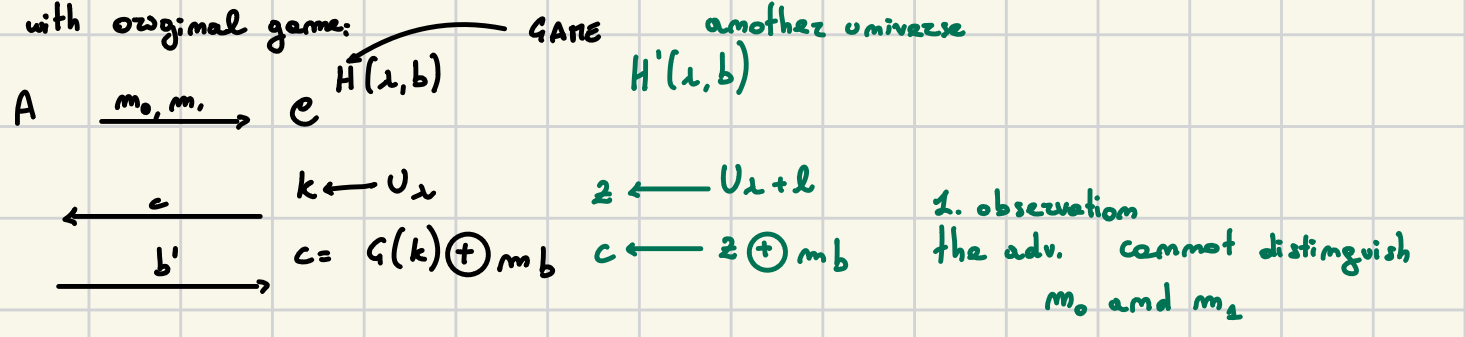 with original game: GAME another universe
H(λ, b) H'(λ, b)
A m₀, m₁ C
k ← U_λ z ← U_λ+l
c 1. observation
c = G(k) ⊕ m_b c ← z ⊕ m_b the adv. cannot distinguish
b'
m₀ and m₁